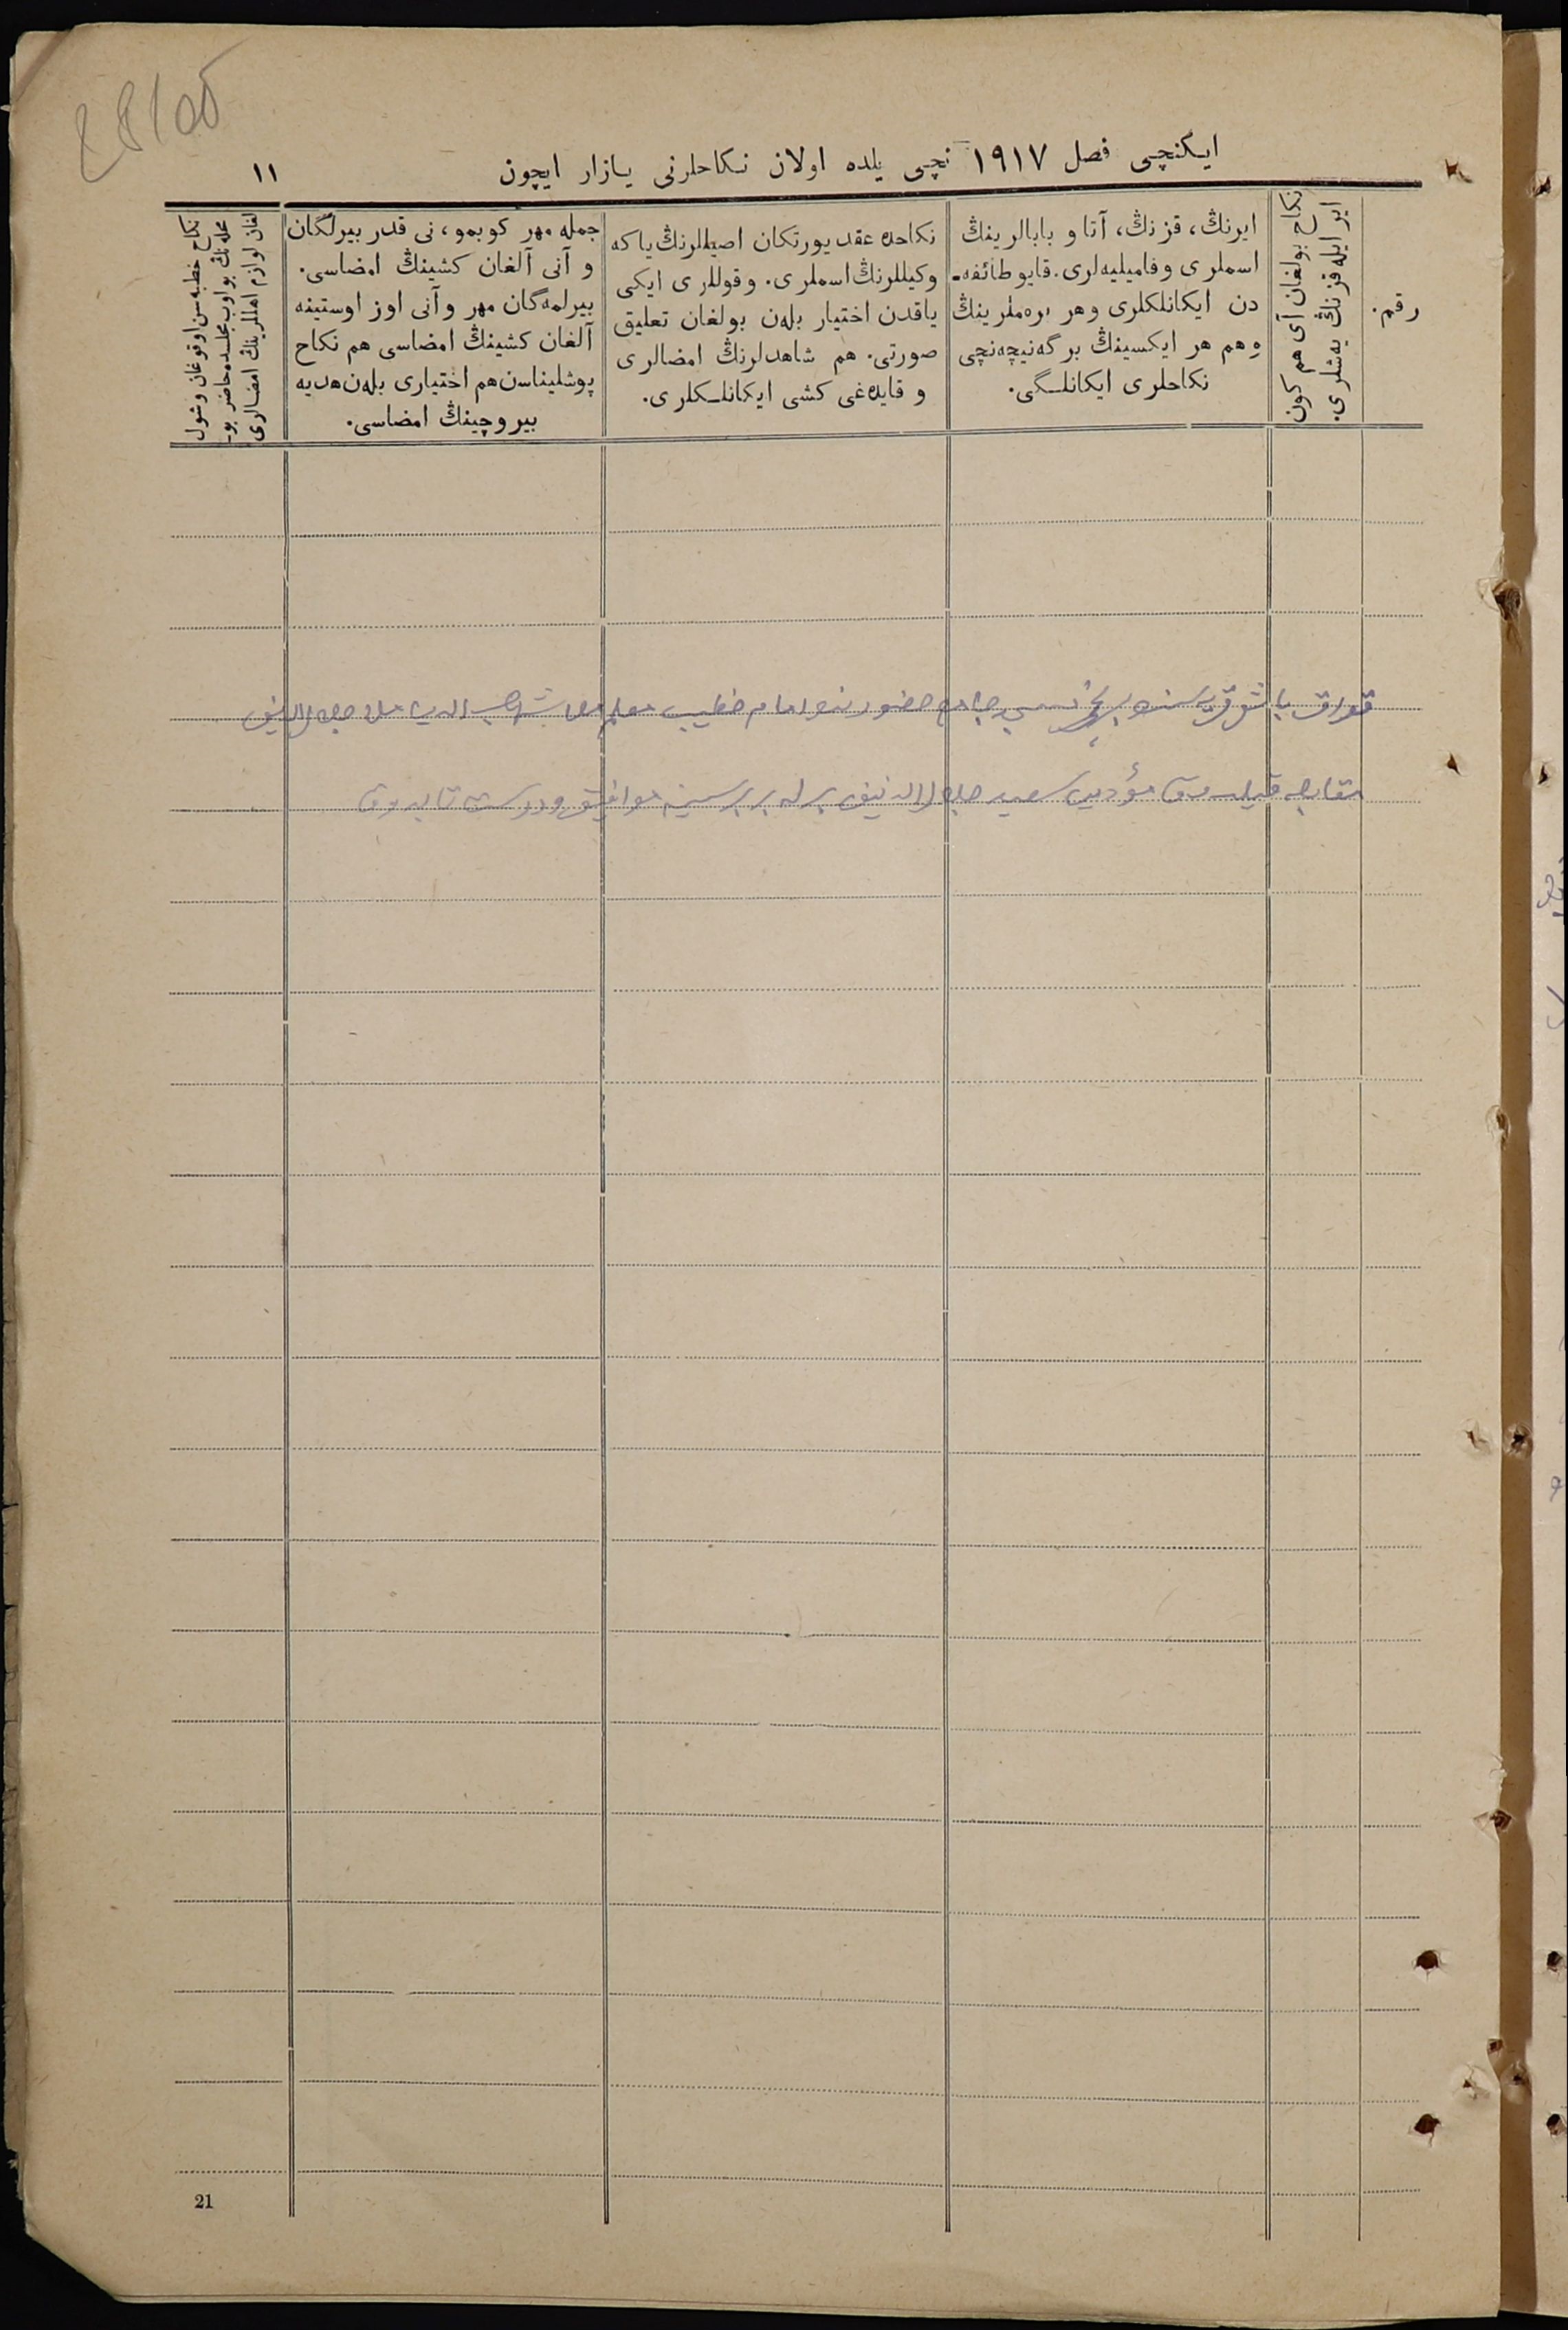 ایکنچی فصل ١٩١٧ نچی یلده اولان نکاحلرنی یازار ایچون
١١
رقم.
نکاح بولغان آی هم کون
ایر ایله قزنڭ یه‌شلری.
ایرنڭ، قزنڭ، آتا و بابالرینڭ
اسملری وفامیلیه‌لری. قایو طائفه‌ـ
دن ایکانلکلری وهر بره‌ملرینڭ
وهم هر ایکسینڭ برگه‌نیچه‌نچی
نکاحلری ایکانلـگی.
نکاحده عقد یورتکان اصیللرنڭ یاکه
وکیللرنڭ اسملری. وقوللری ایکی
یاقدن اختیار بله‌ن بولغان تعلیق
صورتی. هم شاهدلرنڭ امضالری
و قایده‌غی کشی ایکانلـکلری.
جمله مهر کوبمو، نی قدر بیرلگان
و آنی آلغان کشینڭ امضاسی.
بیرلمه‌گان مهر وآنی اوز اوستینه
آلغان کشینڭ امضاسی هم نکاح
پوشلیناسن هم اختیاری بله‌ن هدیه
بیروچینڭ امضاسی.
نکاح خطبه سن اوقوغان وشول
محله نڭ بولوب مجلسده حاضر بو۔
لغان لوازم اهللرینڭ امضالری
قریه سنده برنچی جامع حضورنده امام خطیب معلم
سعید جلال الدینف برله بربرسینه موافق ودرست تابدوق
21